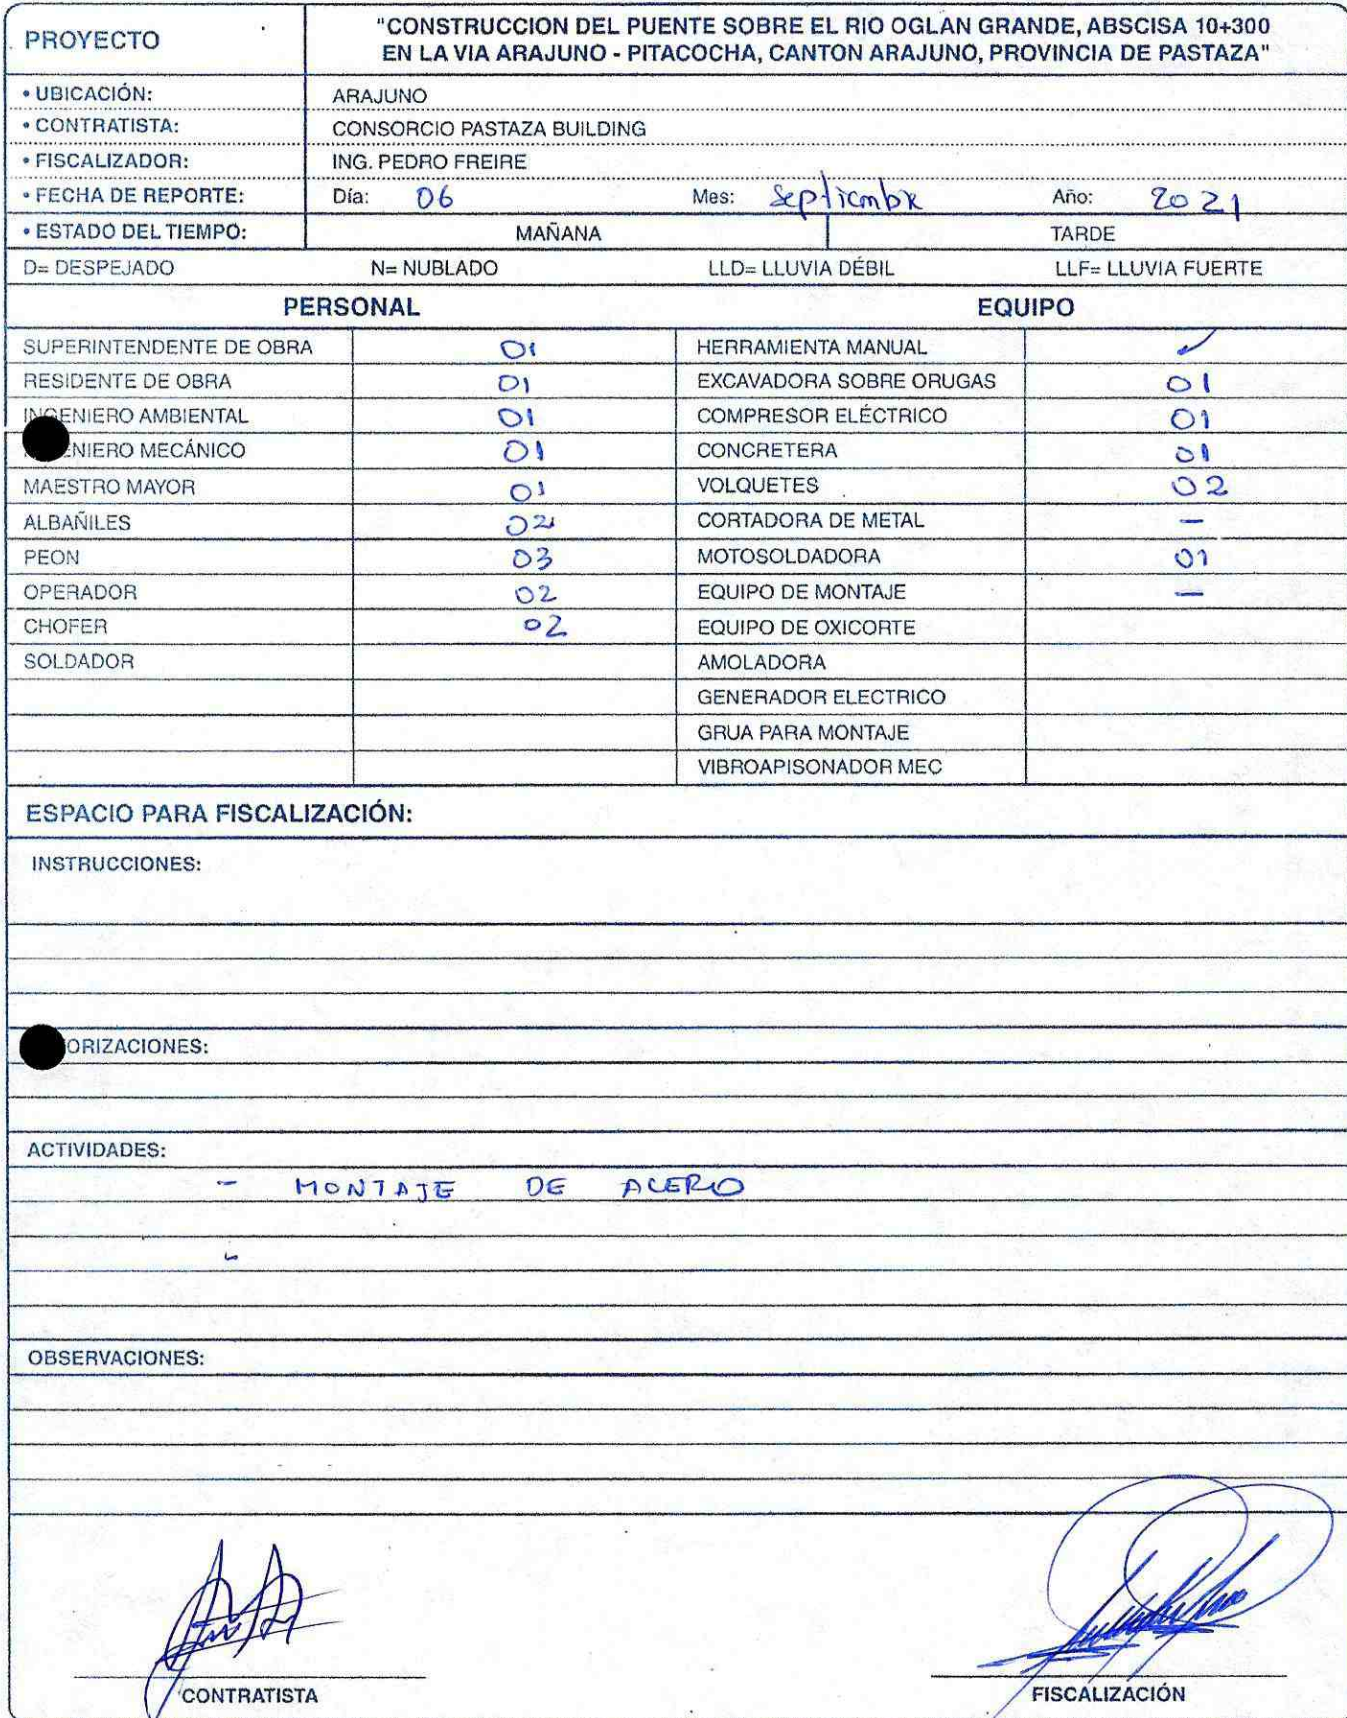 PROYECTO
"CONSTRUCCION DEL PUENTE SOBRE EL RIO OGLAN GRANDE, ABSCISA 10+300
EN LA VIA ARAJUNO - PITACOCHA, CANTON ARAJUNO, PROVINCIA DE PASTAZA"
• UBICACIÓN: ARAJUNO
• CONTRATISTA: CONSORCIO PASTAZA BUILDING
• FISCALIZADOR: ING. PEDRO FREIRE
• FECHA DE REPORTE: Día: 06 Mes: Septiembre Año: 2021
• ESTADO DEL TIEMPO: MAÑANA TARDE
D= DESPEJADO N= NUBLADO LLD= LLUVIA DÉBIL LLF= LLUVIA FUERTE
PERSONAL EQUIPO
SUPERINTENDENTE DE OBRA 01 HERRAMIENTA MANUAL ✓
RESIDENTE DE OBRA 01 EXCAVADORA SOBRE ORUGAS 01
INGENIERO AMBIENTAL 01 COMPRESOR ELÉCTRICO 01
ENIERO MECÁNICO 01 CONCRETERA 01
MAESTRO MAYOR 01 VOLQUETES 02
ALBAÑILES 02 CORTADORA DE METAL —
PEON 03 MOTOSOLDADORA 01
OPERADOR 02 EQUIPO DE MONTAJE —
CHOFER 02 EQUIPO DE OXICORTE
SOLDADOR AMOLADORA
GENERADOR ELECTRICO
GRUA PARA MONTAJE
VIBROAPISONADOR MEC
ESPACIO PARA FISCALIZACIÓN:
INSTRUCCIONES:
ORIZACIONES:
ACTIVIDADES:
- MONTAJE DE ACERO
-
OBSERVACIONES:
CONTRATISTA FISCALIZACIÓN